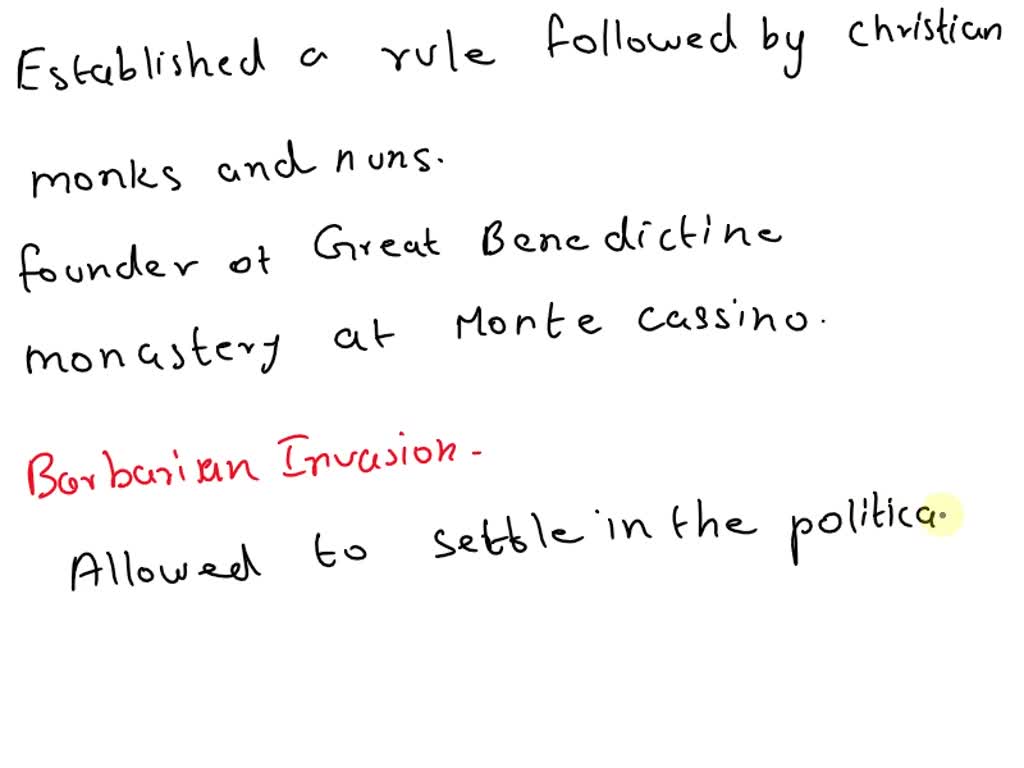 Established a rule followed by christian
monks and nuns.
founder of Great Benedictine
monastery at Monte cassino.
Barbarian Invasion -
Allowed to settle in the politica